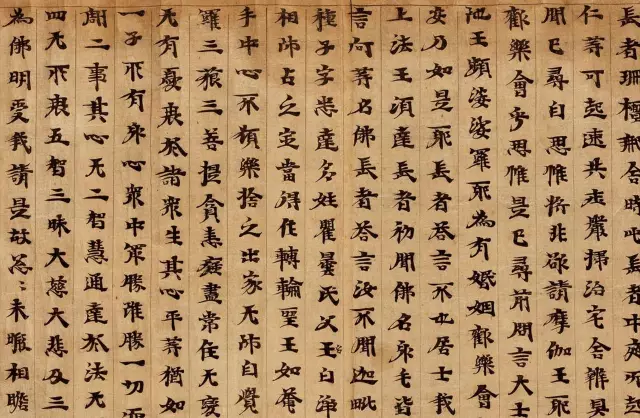 長者珊檀那舍時此長者中夜而起
仁等可起速共莊嚴掃治宅舍辦具
聞已尋自思惟將非欲請摩伽王耶
歡樂會乎思惟是已尋前問言大士
池王頻婆娑羅耶為有婚姻歡樂會
安乃如是耶長者答言不也居士我
上法王須達長者初聞佛名身毛皆
言何等名佛長者答言汝不聞迦毗
種子字悉達多姓瞿曇氏父王白
相師占之定當得作轉輪聖王如菴
手中心不願樂捨之出家无師自覺
羅三藐三菩提貪恚癡盡常住无變
无有憂畏於諸眾生其心平等猶如
一子所有身心眾中第勝雖勝一切而
割二事其心无二智慧通達於法无
四无所畏五智三昧大慈大悲及三
為佛明受我請是故怱〻未暇相瞻